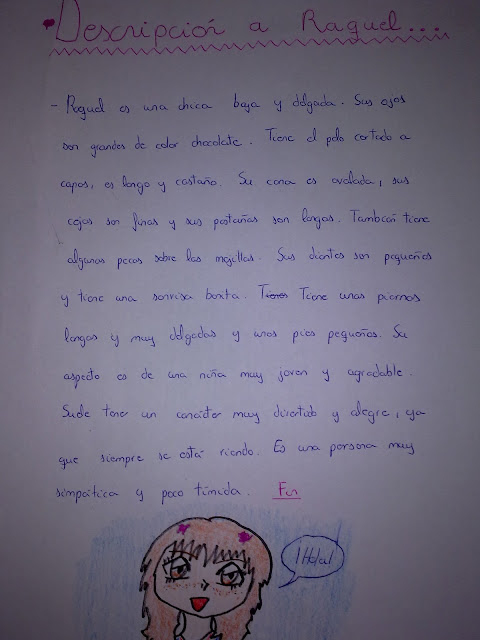 Descripción a Raquel...
- Raquel es una chica baja y delgada. Sus ojos
son grandes de color chocolate. Tiene el pelo cortado a
capas, es largo y castaño. Su cara es ovalada, sus
cejas son finas y sus pestañas son largas. También tiene
algunas pecas sobre las mejillas. Sus dientes son pequeños
y tiene una sonrisa bonita. Tienes Tiene unas piernas
largas y muy delgadas y unos pies pequeños. Su
aspecto es de una niña muy joven y agradable.
Suele tener un carácter muy divertido y alegre, ya
que siempre se está riendo. Es una persona muy
simpática y poco tímida. Fin
¡Hola!